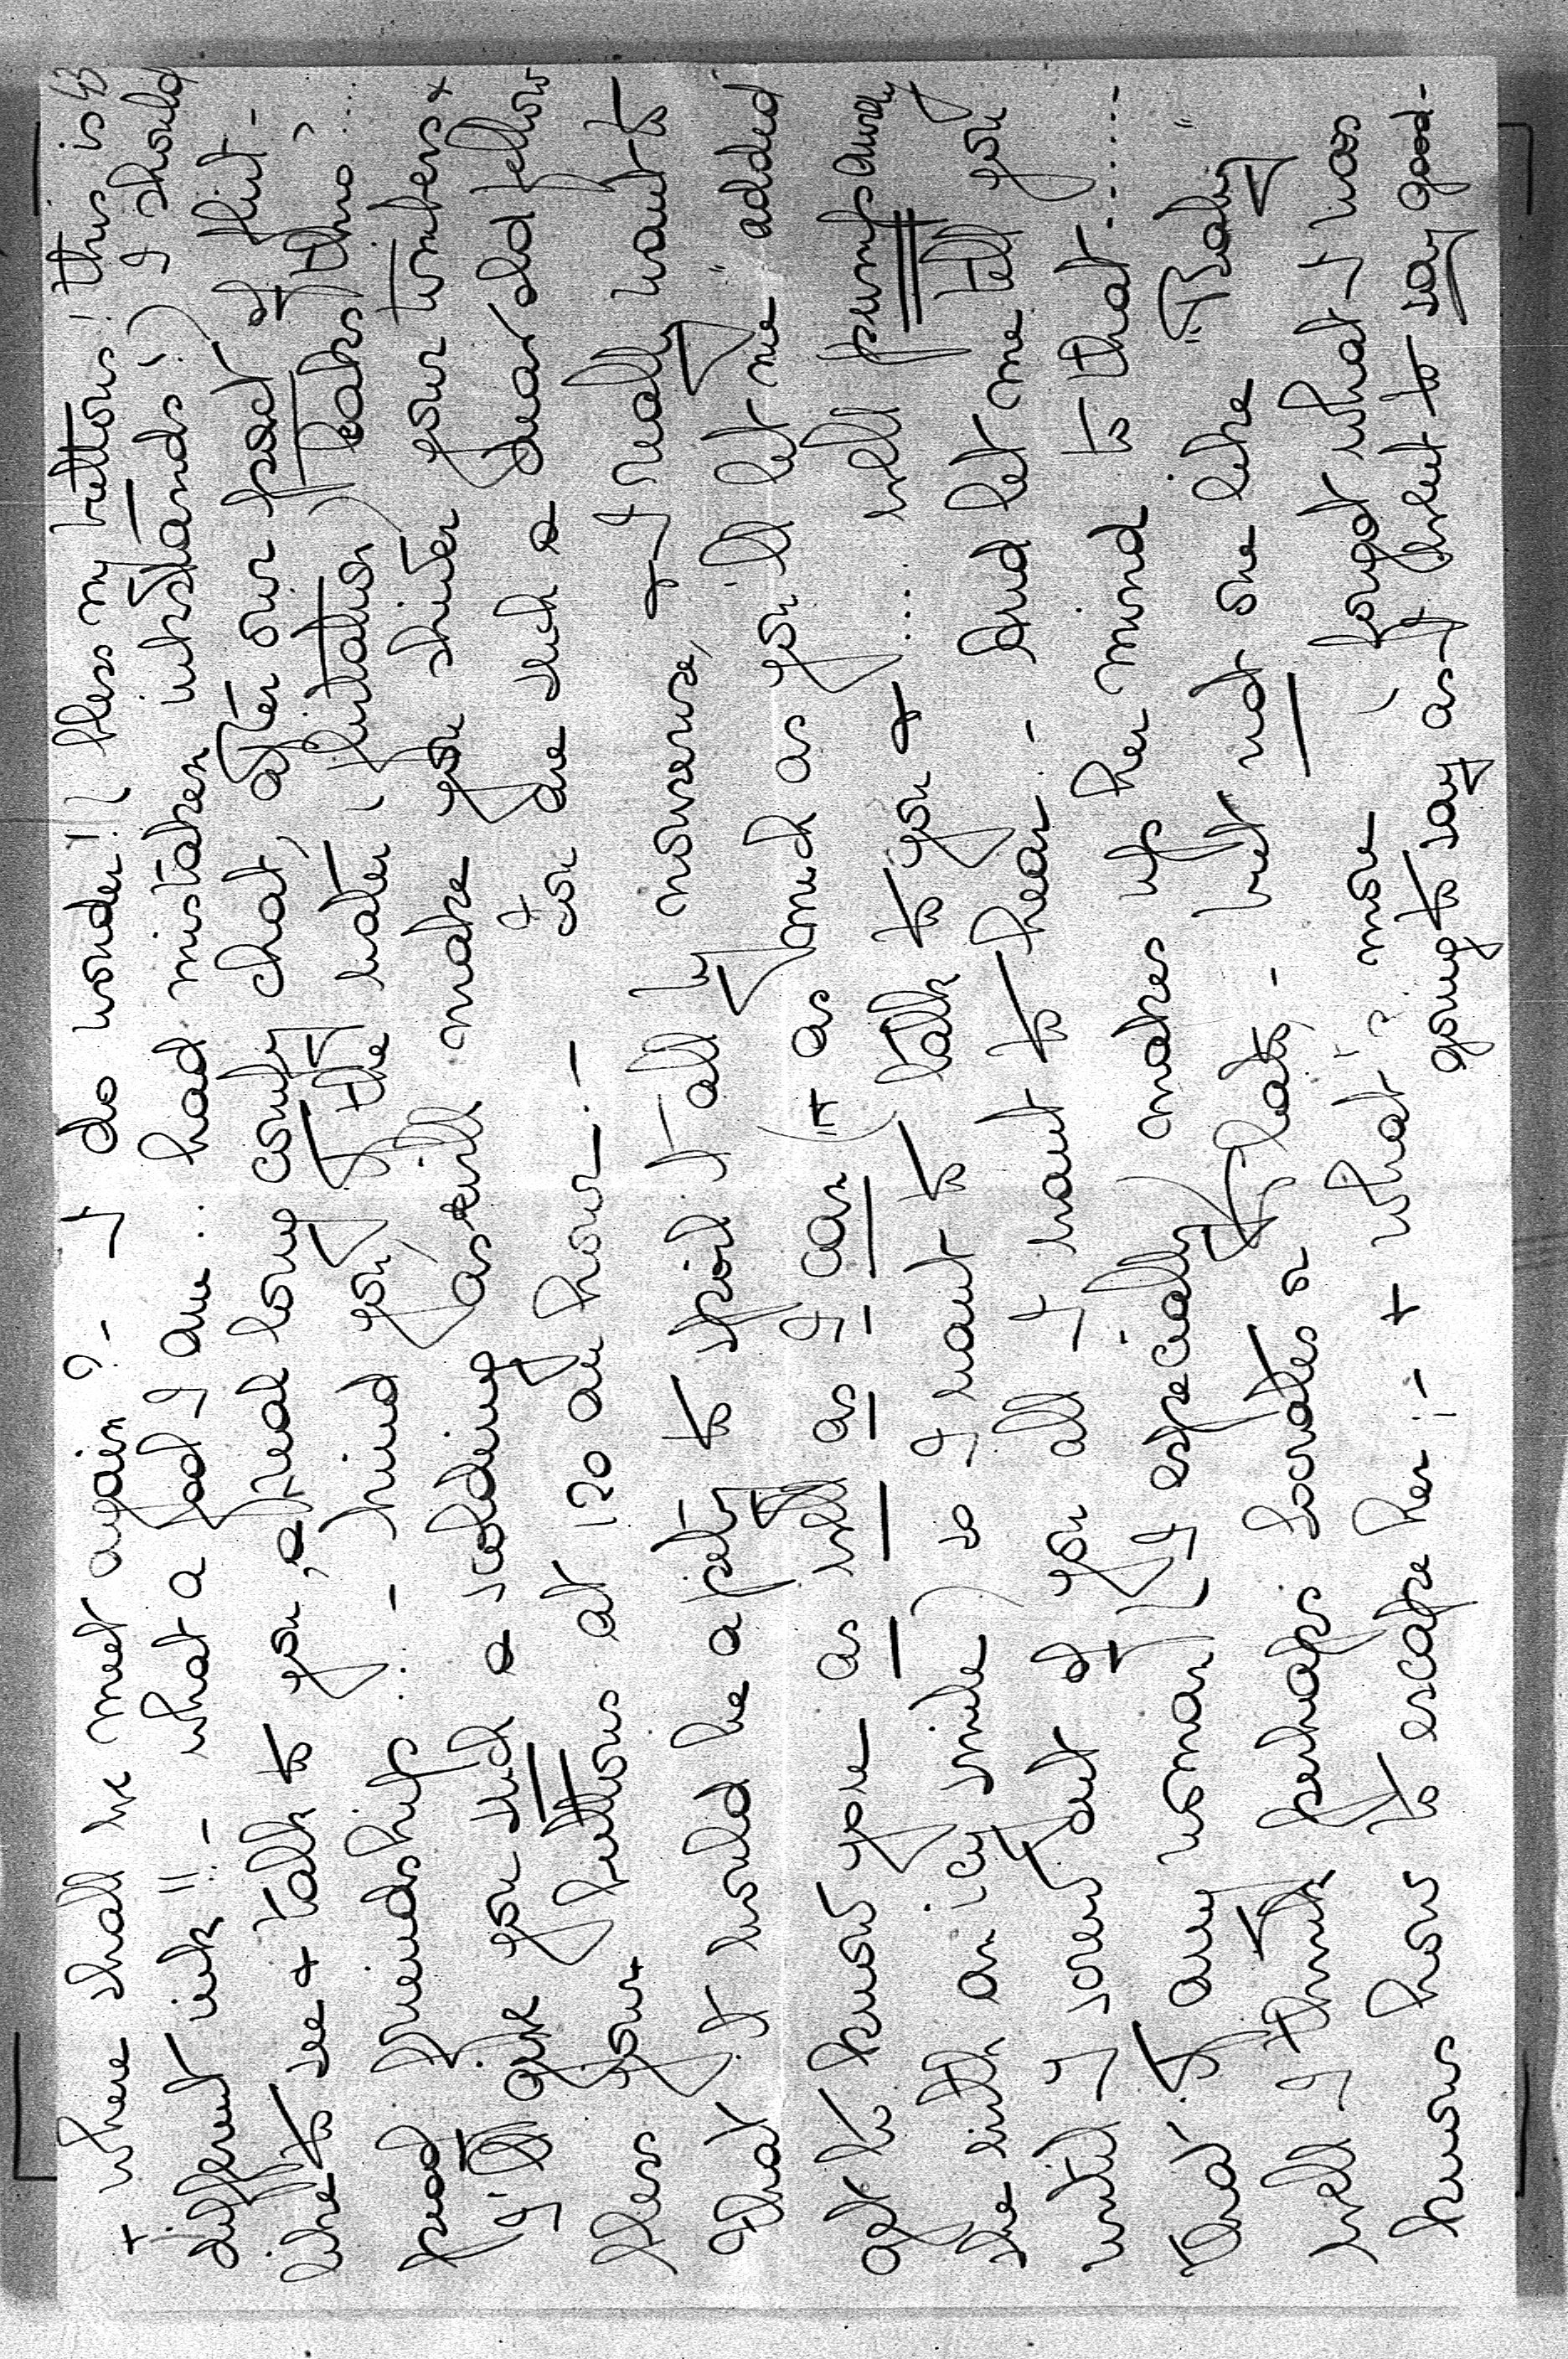 + where shall we meet again? - I do wonder!! (bless my buttons! this is
different ink!! - what a fool I am .. had mistaken inkstands!) I should
like to see + talk to you, a great long comfy chat, after our pact of
good friendship .. - mind you, (the later, flirtation) Peaks this ....
(I'll give you such a scolding as will make you shiver your timbers +
bless your buttons at 120 an hour! - You are such a dear old fellow
that it would be a pity to spoil it all by nonsense, & I really want to
get to know you as well as I can (it as much as you'll let me" added
she with an icy smile) so I want to talk to you & .... well pump away
until I screw out of you all I want to hear. - And let me tell you
that if any woman (I especially) makes up her mind to that ......
well I think perhaps Socrates or Plato, - but not one like "Baby"
knows how to escape her! - + "what"? more (I forgot what I was
going to say as I hate to say good-